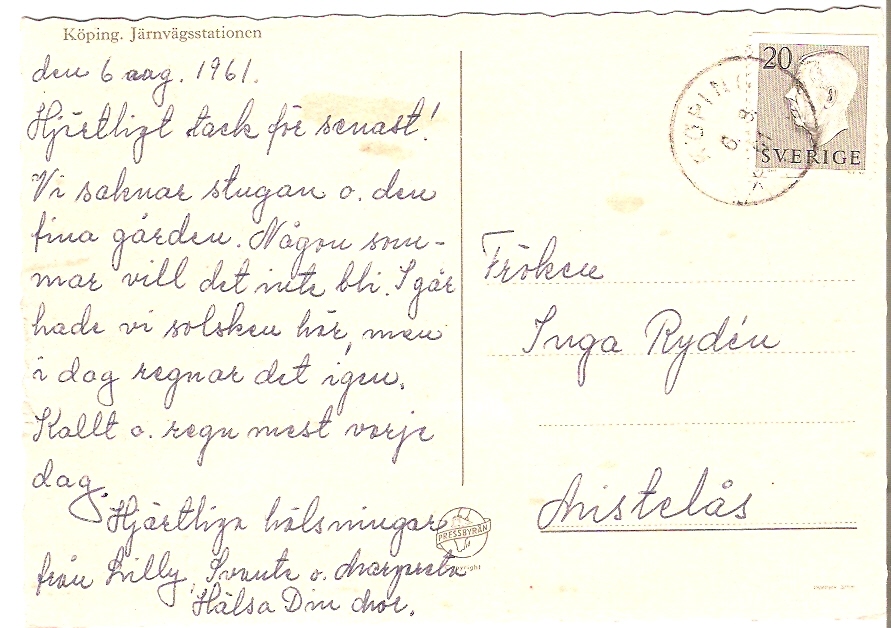 Köping. Järnvägsstationen
den 6 aug. 1961.
Hjärtligt tack för senast!
Vi saknar stugan o. den
fina gården. Någon som-
mar vill det inte bli. I går
hade vi solsken här, men
i dag regnar det igen.
Kallt o. regn mest varje
dag.
Hjärtliga hälsningar
från Lilly, Svante o. Margreta
Hälsa Din mor.
PRESSBYRÅN
Copyright
KÖPING
6 8
20
SVERIGE
Fröken
Inga Rydén
Mistelås